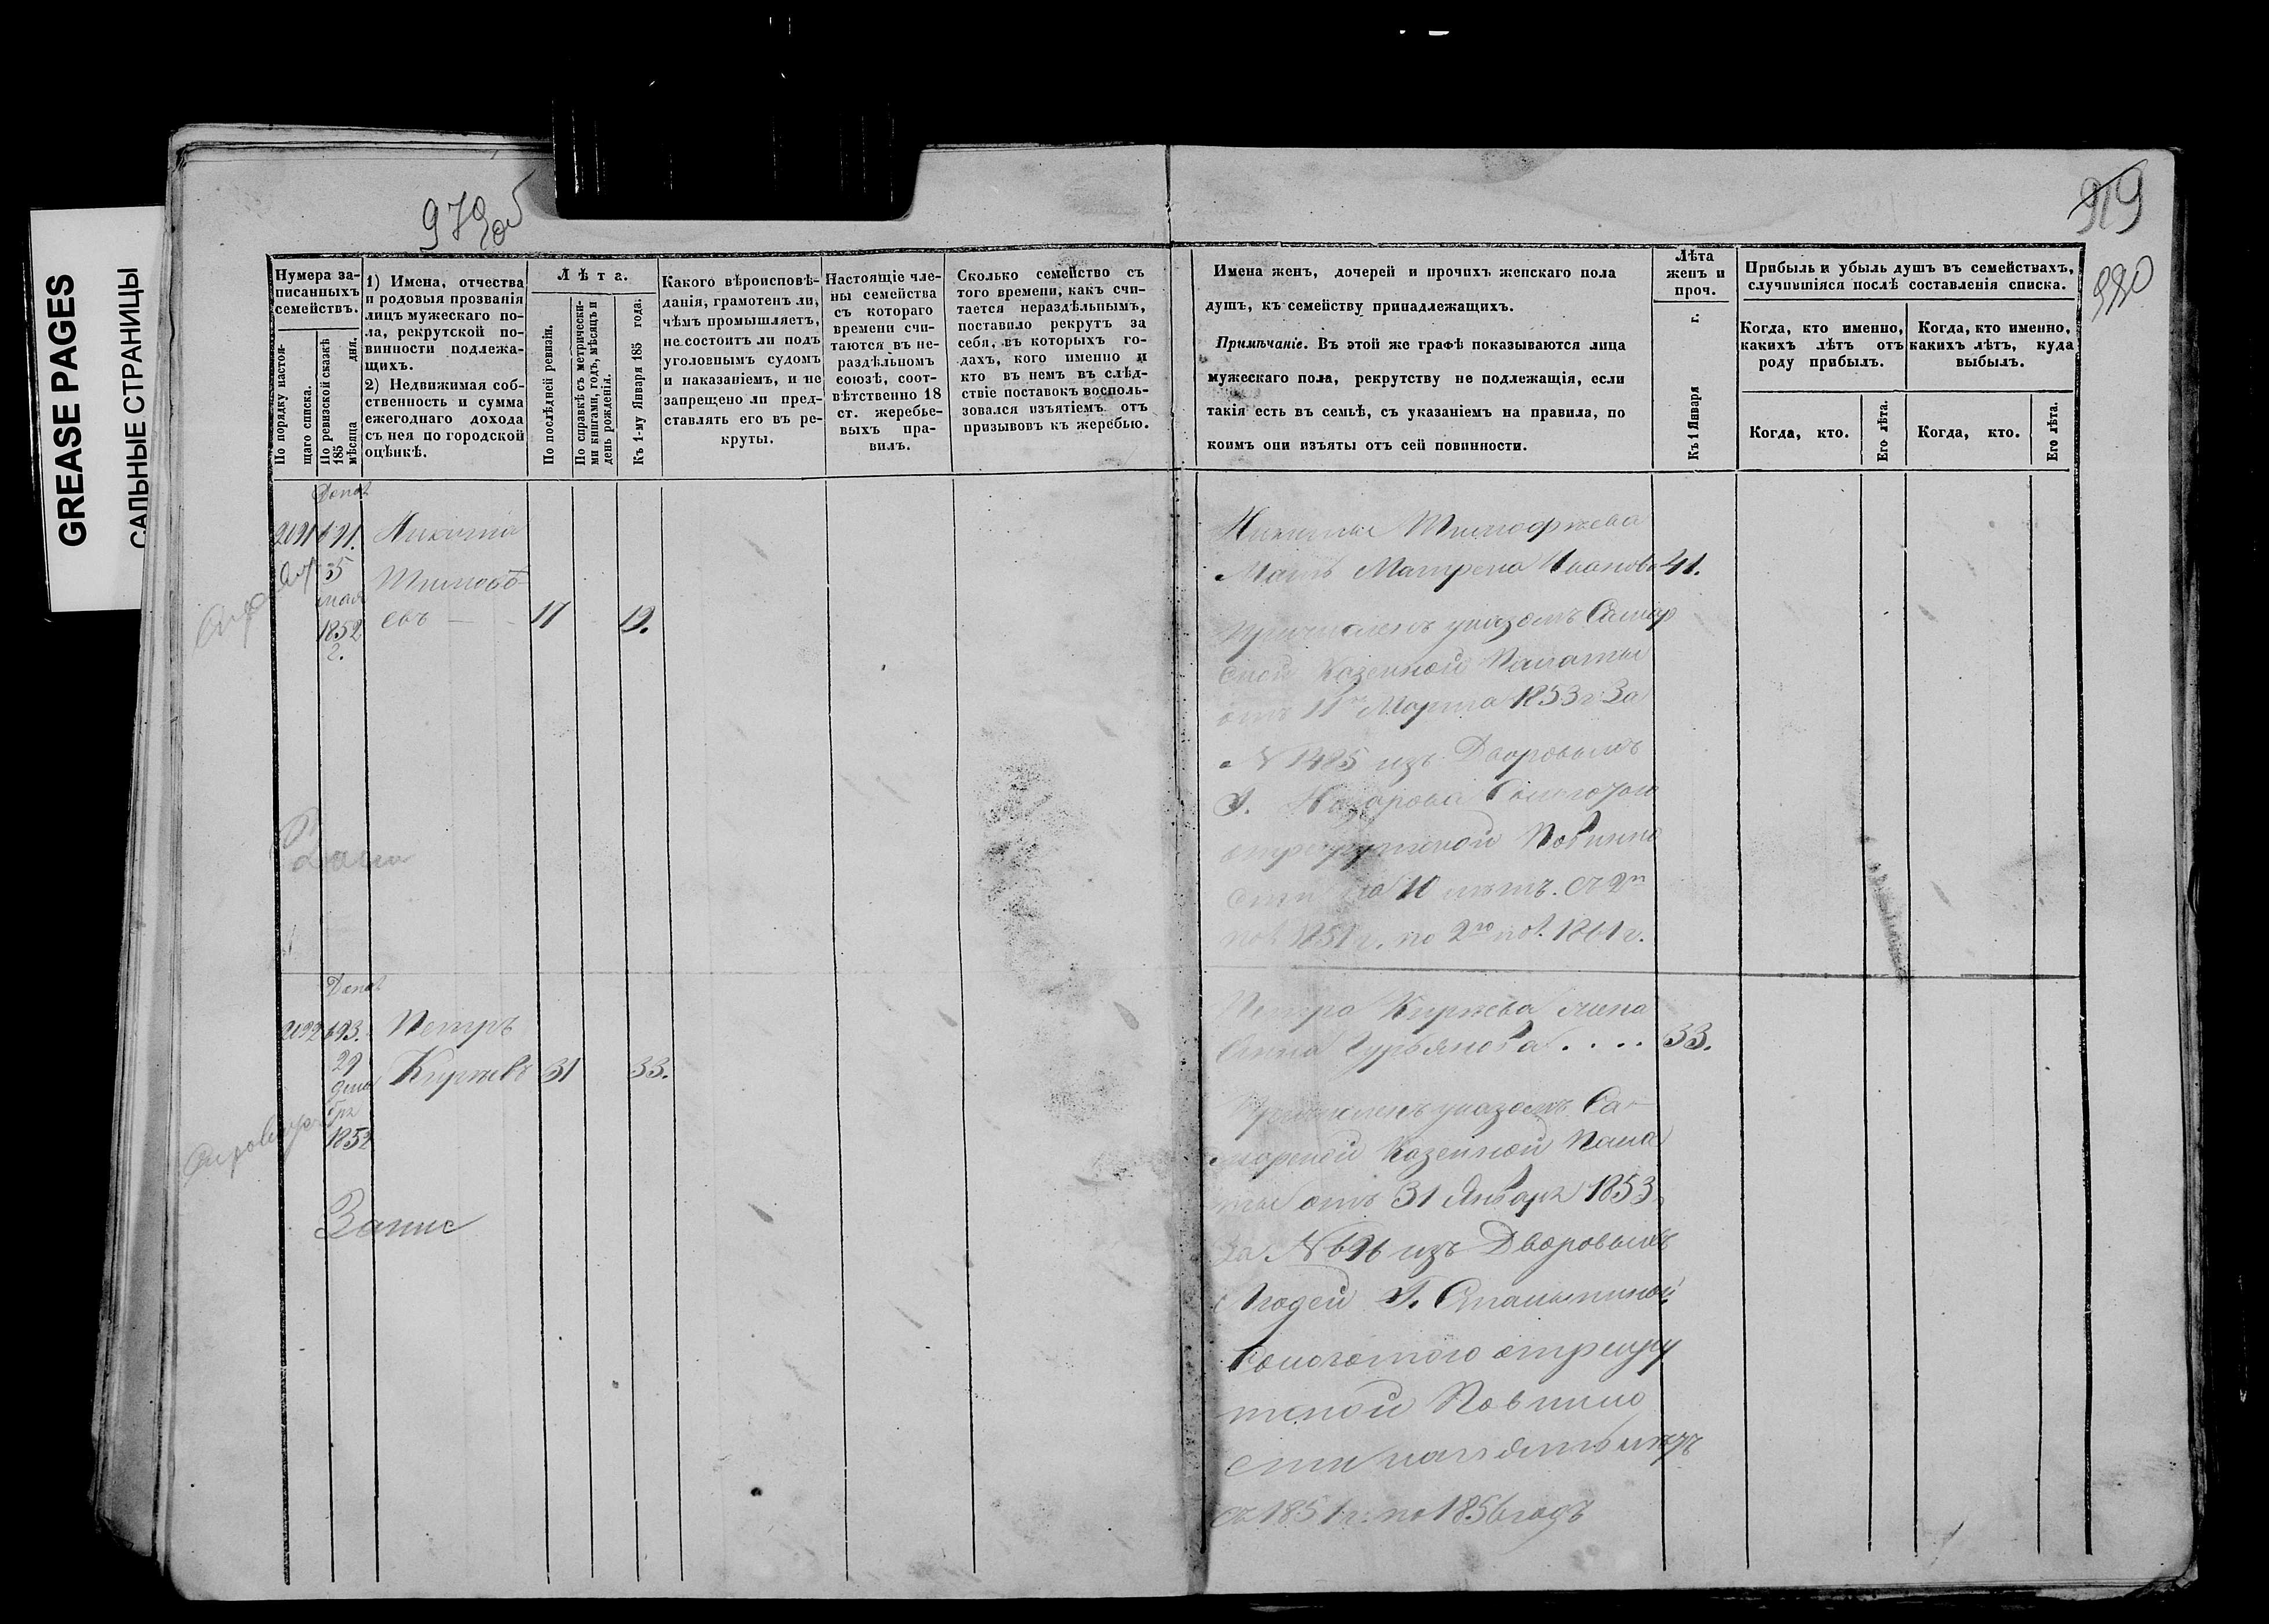 GREASE PAGES
САЛЬНЫЕ СТРАНИЦЫ
979 об
919
980
Нумера за-
писанныхъ
семействъ.
По порядку настоя-
щаго списка.
По ревизской сказкѣ
185 дня.
мѣсяца
1) Имена, отчества
и родовыя прозванія
лицъ мужескаго по-
ла, рекрутской по-
винности подлежа-
щихъ.
2) Недвижимая соб-
ственность и сумма
ежегоднаго дохода
съ нея по городской
оцѣнкѣ.
Лѣта.
По послѣдней ревизіи.
По справкѣ съ метрически-
ми книгами, годъ, мѣсяцъ и
день рожденія.
Къ 1-му Января 185 года.
Какого вѣроисповѣ-
данія, грамотенъ ли,
чѣмъ промышляетъ,
не состоитъ ли подъ
уголовнымъ судомъ
и наказаніемъ, и не
запрещено ли пред-
ставлять его въ ре-
круты.
Настоящіе чле-
ны семейства
съ котораго
времени счи-
таются въ не-
раздѣльномъ
союзѣ, соот-
вѣтственно 18
ст. жеребье-
выхъ пра-
вилъ.
Сколько семейство съ
того времени, какъ счи-
тается нераздѣльнымъ,
поставило рекрутъ за
себя, въ которыхъ го-
дахъ, кого именно и
кто въ немъ въ слѣд-
ствіе поставокъ восполь-
зовался изъятіемъ отъ
призывовъ къ жеребью.
Имена женъ, дочерей и прочихъ женскаго пола
душъ, къ семейству принадлежащихъ.
Примѣчаніе. Въ этой же графѣ показываются лица
мужескаго пола, рекрутству не подлежащія, если
такія есть въ семьѣ, съ указаніемъ на правила, по
коимъ они изъяты отъ сей повинности.
Лѣта
женъ и
проч.
Къ 1 Января г.
Прибыль и убыль душъ въ семействахъ,
случившіяся послѣ составленія списка.
Когда, кто именно,
какихъ лѣтъ отъ
роду прибылъ.
Когда, кто именно,
какихъ лѣтъ, куда
выбылъ.
Когда, кто.
Его лѣта.
Когда, кто.
Его лѣта.
Допол
691. Никита
мая
Тимофѣ-
1852 евъ 11 19.
г.
Никиты Тимофѣева
Мать Матрена Иванова 41.
Причисленъ указомъ Самар
ской Казенной Палаты
отъ 11го Марта 1853 г За
№ 1485 изъ Дворовыхъ
Г. Назарова Съ льготою
отрекрутской Повинно
сти на 10 лѣтъ. Съ 2й
пол 1851 г. по 2ю пол. 1861 г.
Допол
693. Петръ
29
дека Кирѣевъ 31 33.
бря
1852
Запис
Петра Кирѣева жена
Анна Гурьянова .... 33.
Причисленъ указомъ Са-
марской Казенной Пала
ты отъ 31 Января 1853
За № 696 изъ Дворовыхъ
Людей Г.
Сольготою отрекру
тской Повинно
сти на пять лѣтъ
съ 1851 г: по 1856 годъ